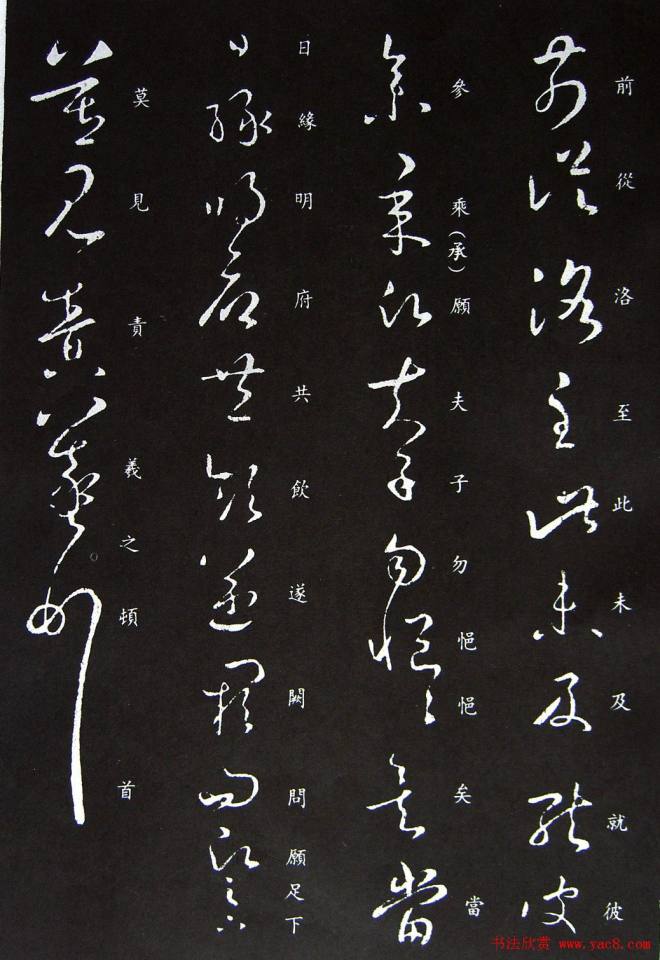 前從洛至此未及就彼
參乘(承)願夫子勿悒悒矣當
日緣明府共飲遂闕問願足下
莫見責羲之頓首
书法欣赏 www.yac8.com